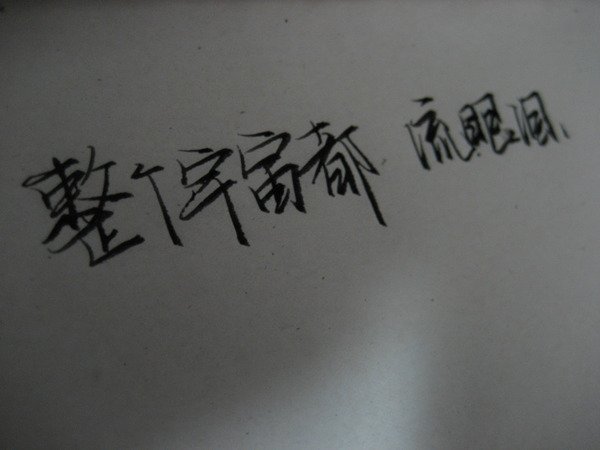 整个宇宙都 流眼泪、